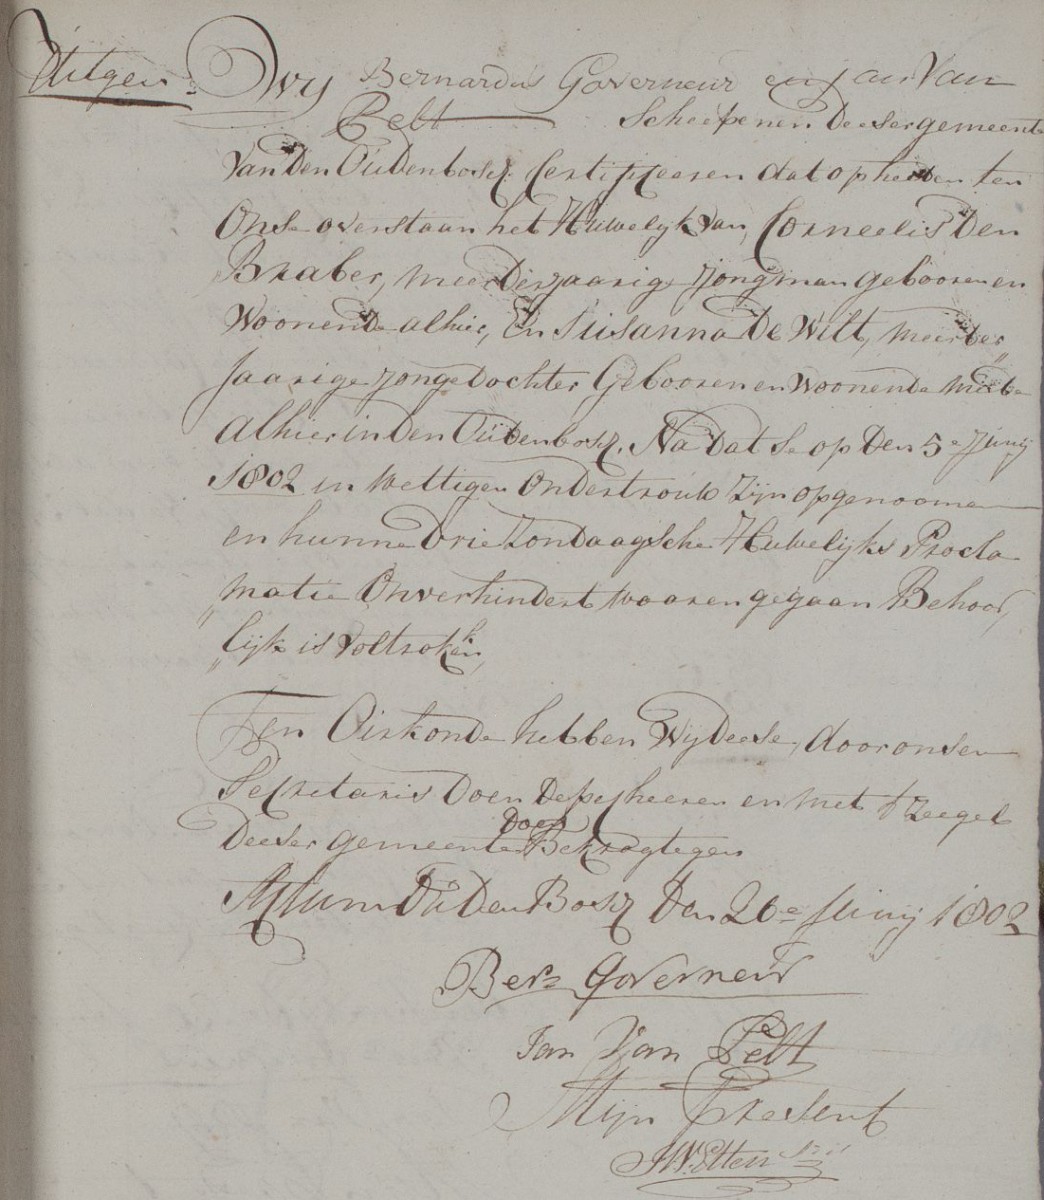 Uitgen: Wij Bernardus Governeur en Jan Van
Pelt Scheepenen Deeser gemeente
van Den Oudenbosch Certificeeren dat op heeden ten
Onse overstaan het Huwelijk van, Corneelis Den
Braber, meerderjaarige jongman gebooren en
Woonende alhier, En Susanna De Wilt, meerder„
Jaarige jongedochter Gebooren en woonende mede
Alhier in Den Oudenbosch, Na dat se op Den 5e Junij
1802 in wettigen Ondertrouw zijn opgenoomen
en hunne Drie Zondaagsche Huwelijks Procla
„matie Onverhindert waaren gegaan Behoor„
„lijk is voltrokken,
Ten Oirkonde hebben Wij Deese, door onsen
Secretaris Doen Depecheeren en met t Zeegel
Deeser gemeente Doen Bekragtegen
Actum Ouden Bosch Den 26e Junij 1802
Bers Governeur
Jan Van Pelt
Mijn Present